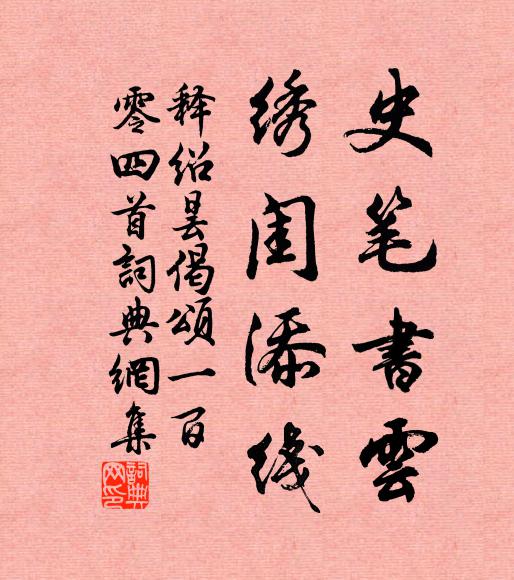 史笔書雲
绣闺添线
释绍昙偈頌一百
零四首詞典網集
詞典网印